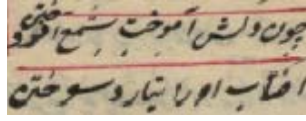 چون دلش آموخت شمع افروختن
آفتاب او را نیارد سوختن